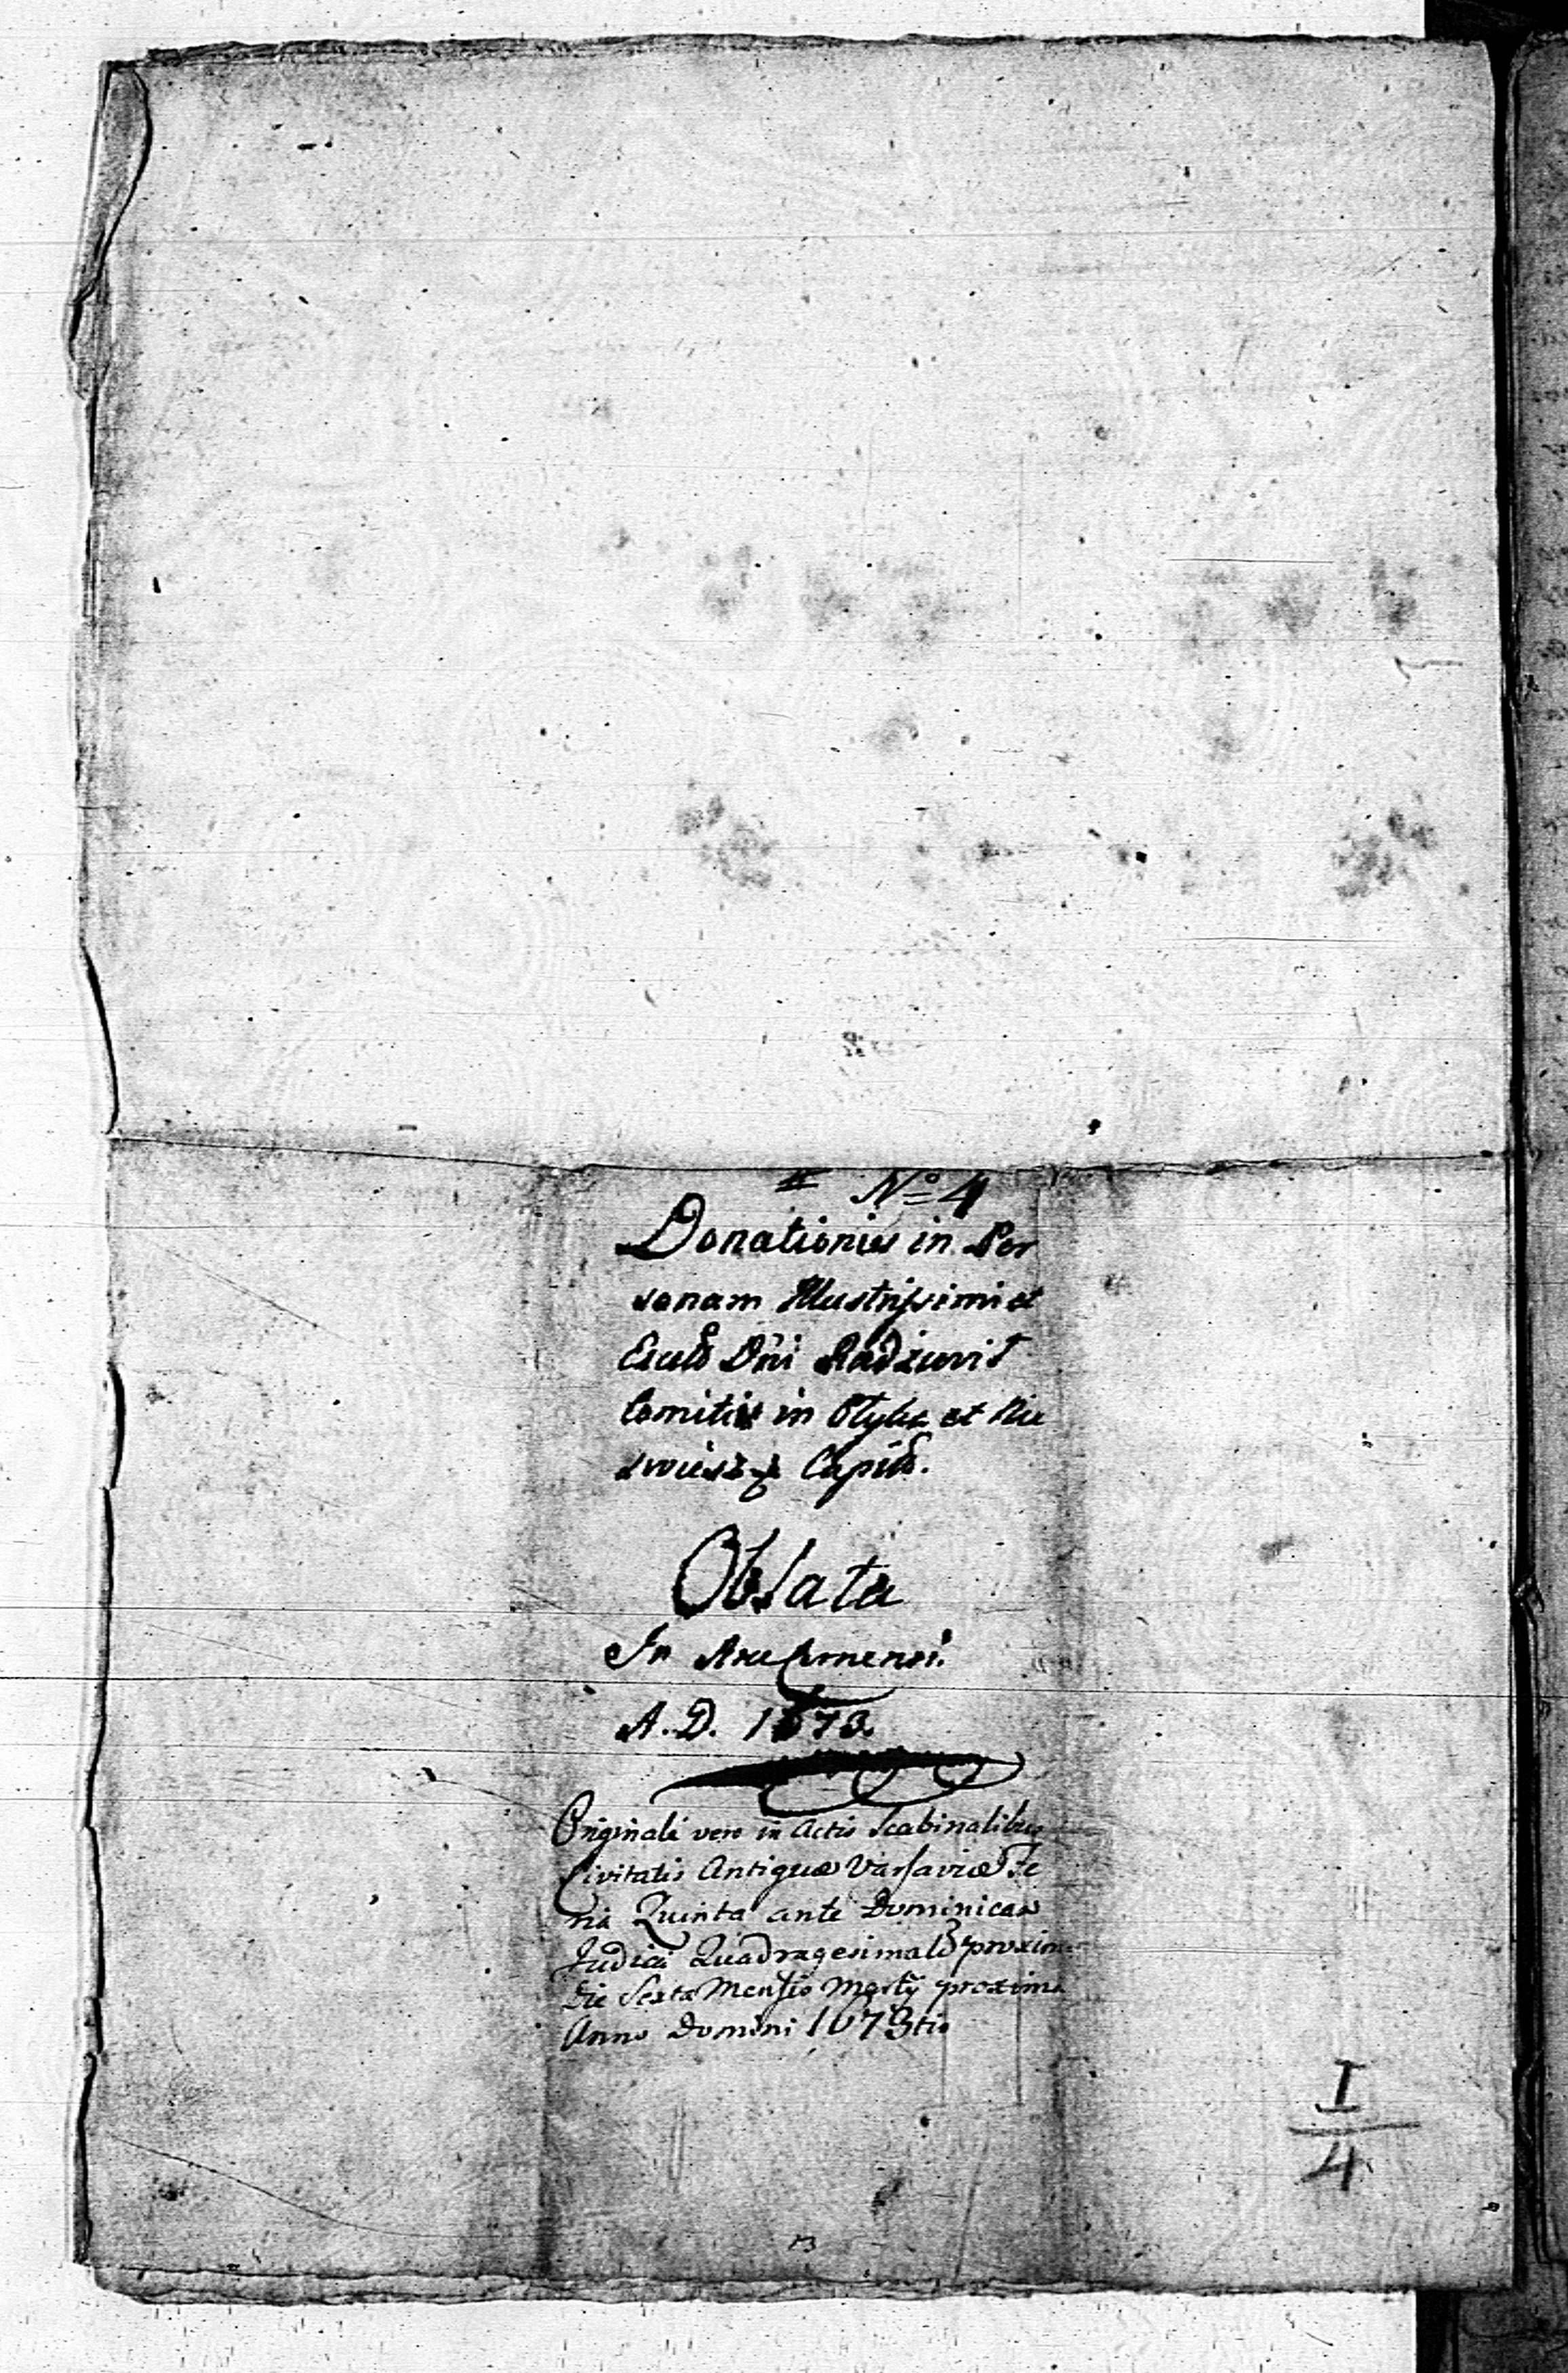 # No 4
Donationis in Per
sonam Illustrissimi et
Dni Radziwił
Comitis in et Nie
Capit.
Oblata
In
A. D. 1673.
Originale vero in Actis Scabinalibus
Civitatis Antiquæ Varsaviæ Fe
ria Quinta ante Dominicam
Judica Quadragesimal proxim
die Sexta Mensis Martij proxima
Anno Domini 1673tio
I
4
13